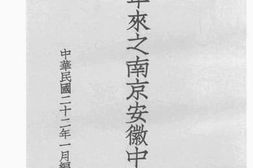 年來之南京安徽中
中華民國二十二年一月